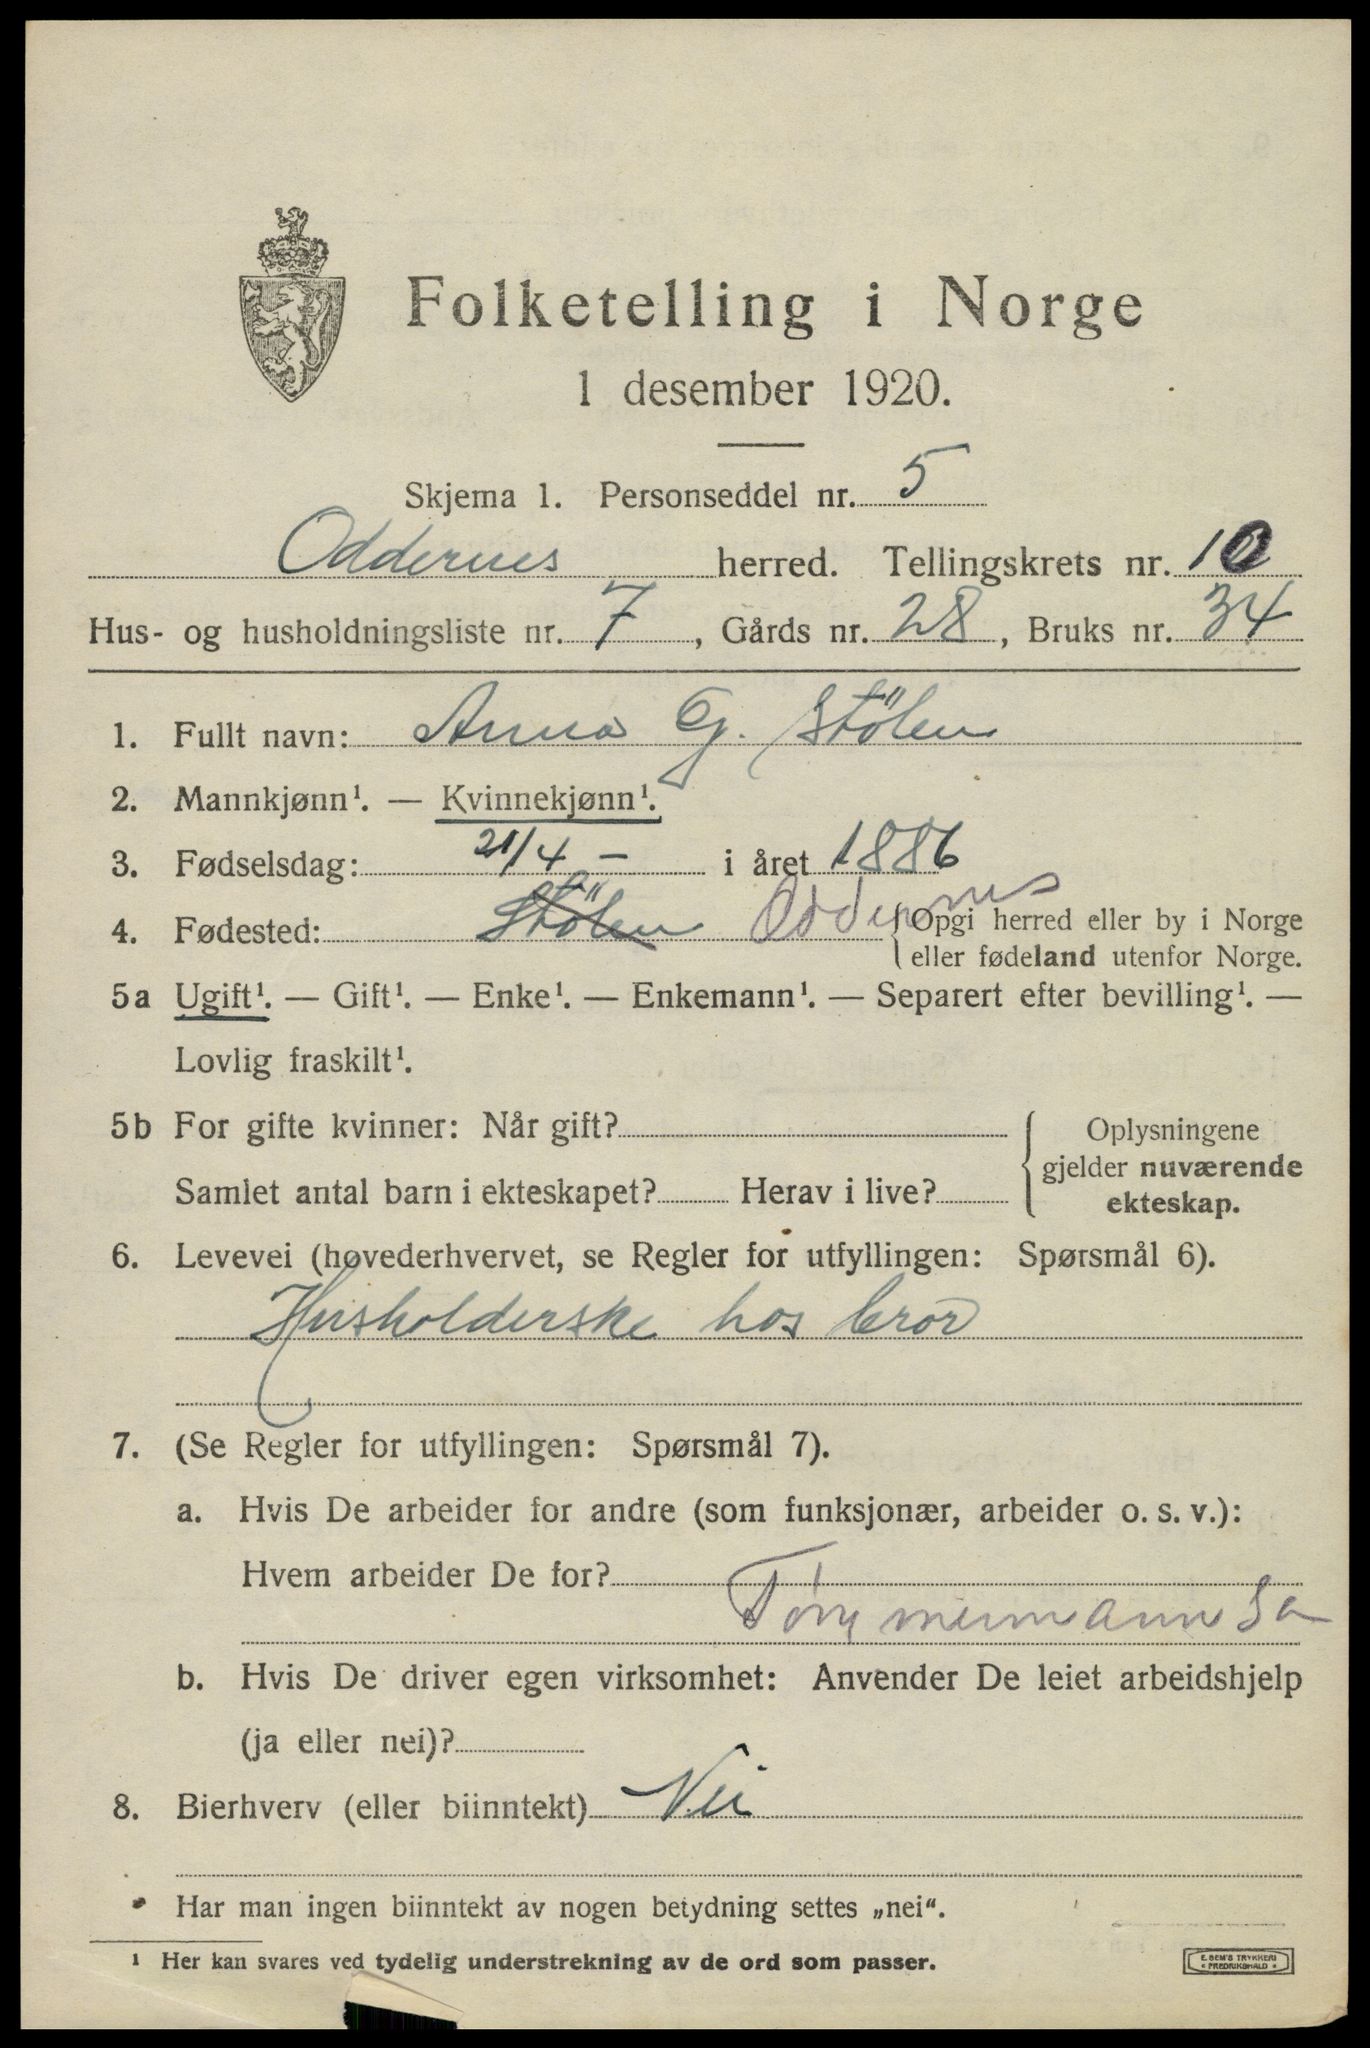 Folketelling i Norge
1 desember 1920.
Skjema 1. Personseddel nr. 5
Oddernes herred. Tellingskrets nr. 10
Hus- og husholdningsliste nr. 7, Gårds nr. 28, Bruks nr. 34
1. Fullt navn: Anna G. Stölen
2. Mannkjønn¹. — Kvinnekjønn¹.
3. Fødselsdag: 21/4 – i året 1886
4. Fødested: Stölen Oddernes {Opgi herred eller by i Norge
eller fødeland utenfor Norge.
5a Ugift¹. — Gift¹. — Enke¹. — Enkemann¹. — Separert efter bevilling¹. —
Lovlig fraskilt¹.
5b For gifte kvinner: Når gift?
Samlet antal barn i ekteskapet? Herav i live?
Oplysningene
gjelder nuværende
ekteskap.
6. Levevei (hovederhvervet, se Regler for utfyllingen: Spørsmål 6).
Husholderske hos bror
7. (Se Regler for utfyllingen: Spørsmål 7).
a. Hvis De arbeider for andre (som funksjonær, arbeider o. s. v.):
Hvem arbeider De for?
Tømmermann
b. Hvis De driver egen virksomhet: Anvender De leiet arbeidshjelp
(ja eller nei)?
8. Bierhverv (eller biinntekt) Nei
Har man ingen biinntekt av nogen betydning settes „nei“.
¹ Her kan svares ved tydelig understrekning av de ord som passer.
E. SEM'S TRYKKERI
FREDRIKSHALD